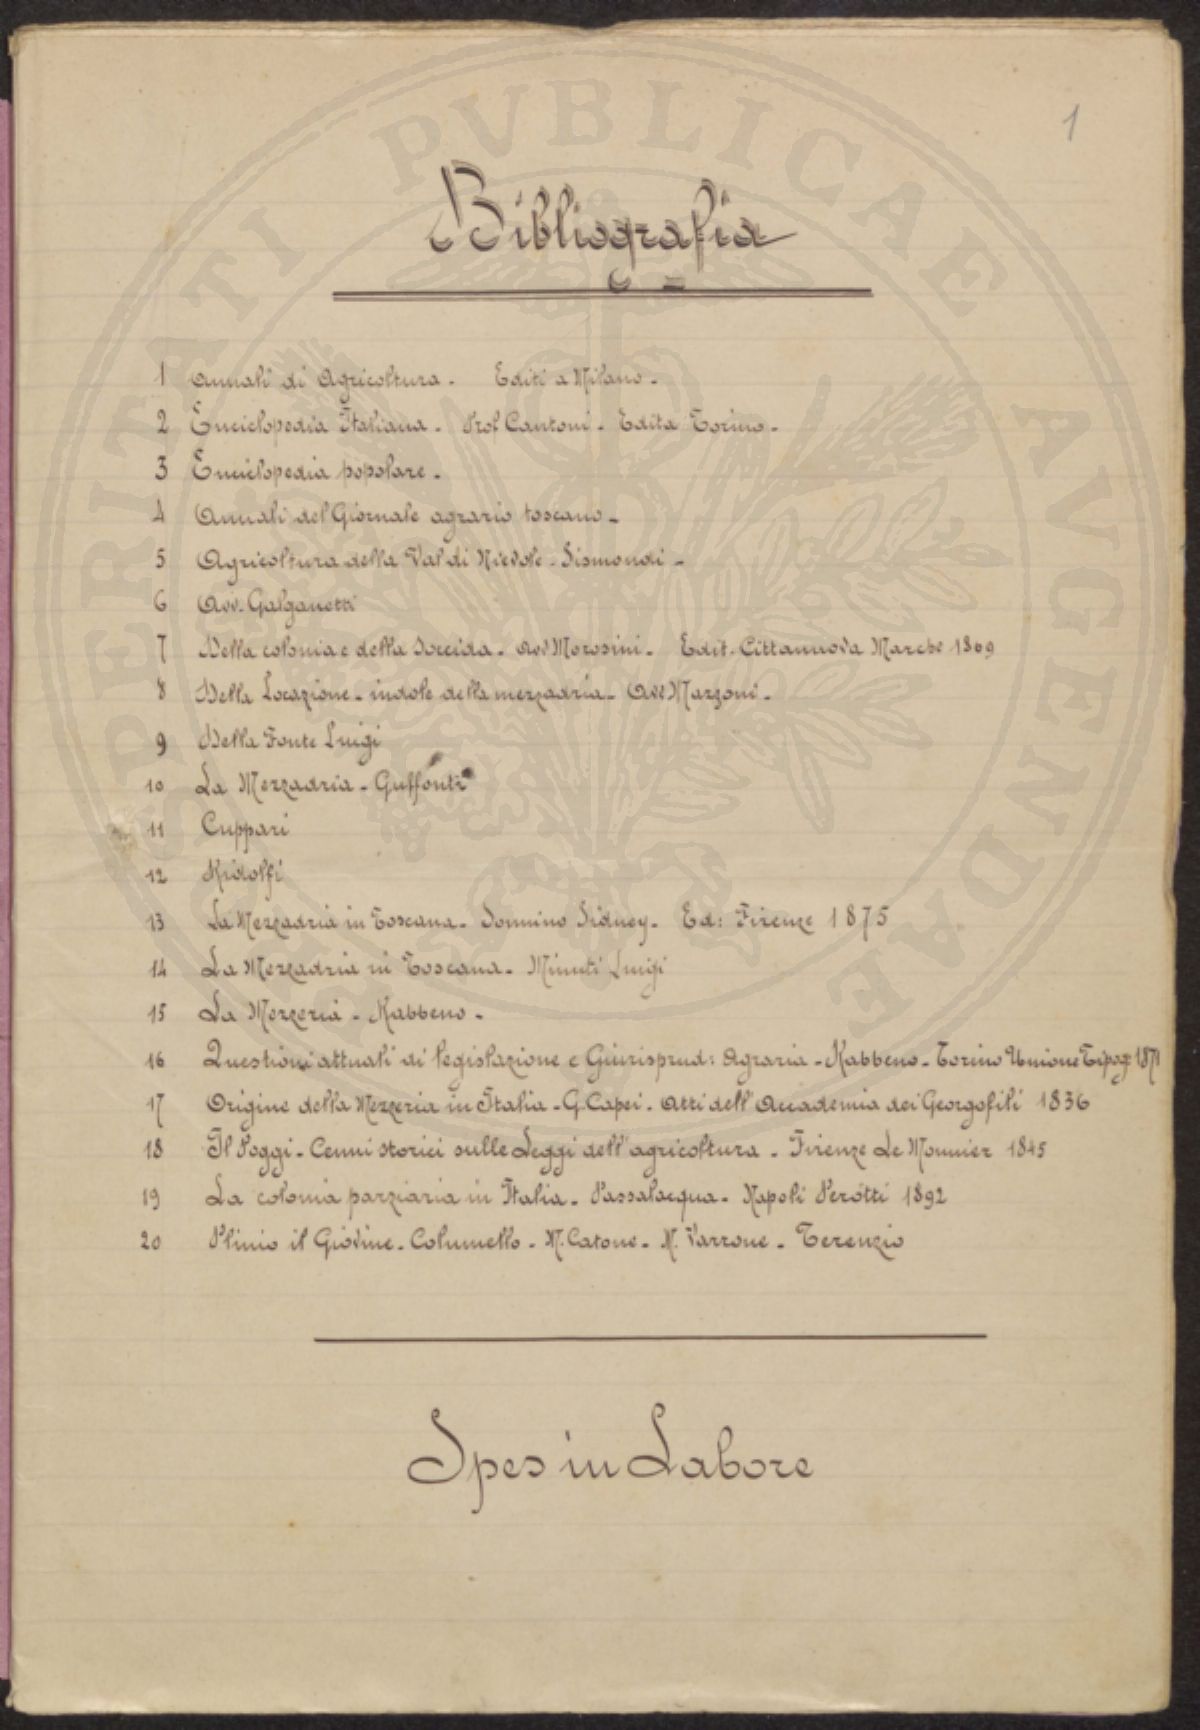 1
Bibliografia
1 Annali di Agricoltura - Editi a Milano -
2 Enciclopedia Italiana - Prof Cantoni - Edita Torino -
3 Enciclopedia popolare -
4 Annali del Giornale agrario toscano -
5 Agricoltura della Val di Nievole - Sismondi -
6 Avv. Galganetti
7 Della colonia e della Soccida - Avv Morosini - Edit. Cittannova Marche 1869
8 Della Locazione - indole della mezzadria - Avv Marzoni -
9 Della Fonte Luigi
10 La Mezzadria - Guffonti
11 Cuppari
12 Ridolfi
13 La Mezzadria in Toscana - Sonnino Sidney - Ed: Firenze 1875
14 La Mezzadria in Toscana - Minuti Luigi
15 La Mezzeria - Rabbeno -
16 Questioni attuali di legislazione e Giurisprud: Agraria - Rabbeno - Torino Unione Tipogr
17 Origine della Mezzeria in Italia - G. Capei - Atti dell'Accademia dei Georgofili 1836
18 Il Poggi - Cenni storici sulle Leggi dell'agricoltura - Firenze Le Monnier 1845
19 La colonia parziaria in Italia - Passalacqua - Napoli Perotti 1892
20 Plinio il Giovine - Columello - M. Catone - M. Varrone - Terenzio
Spes in Labore
PROSPERITATI PVBLICAE AVGENDAE